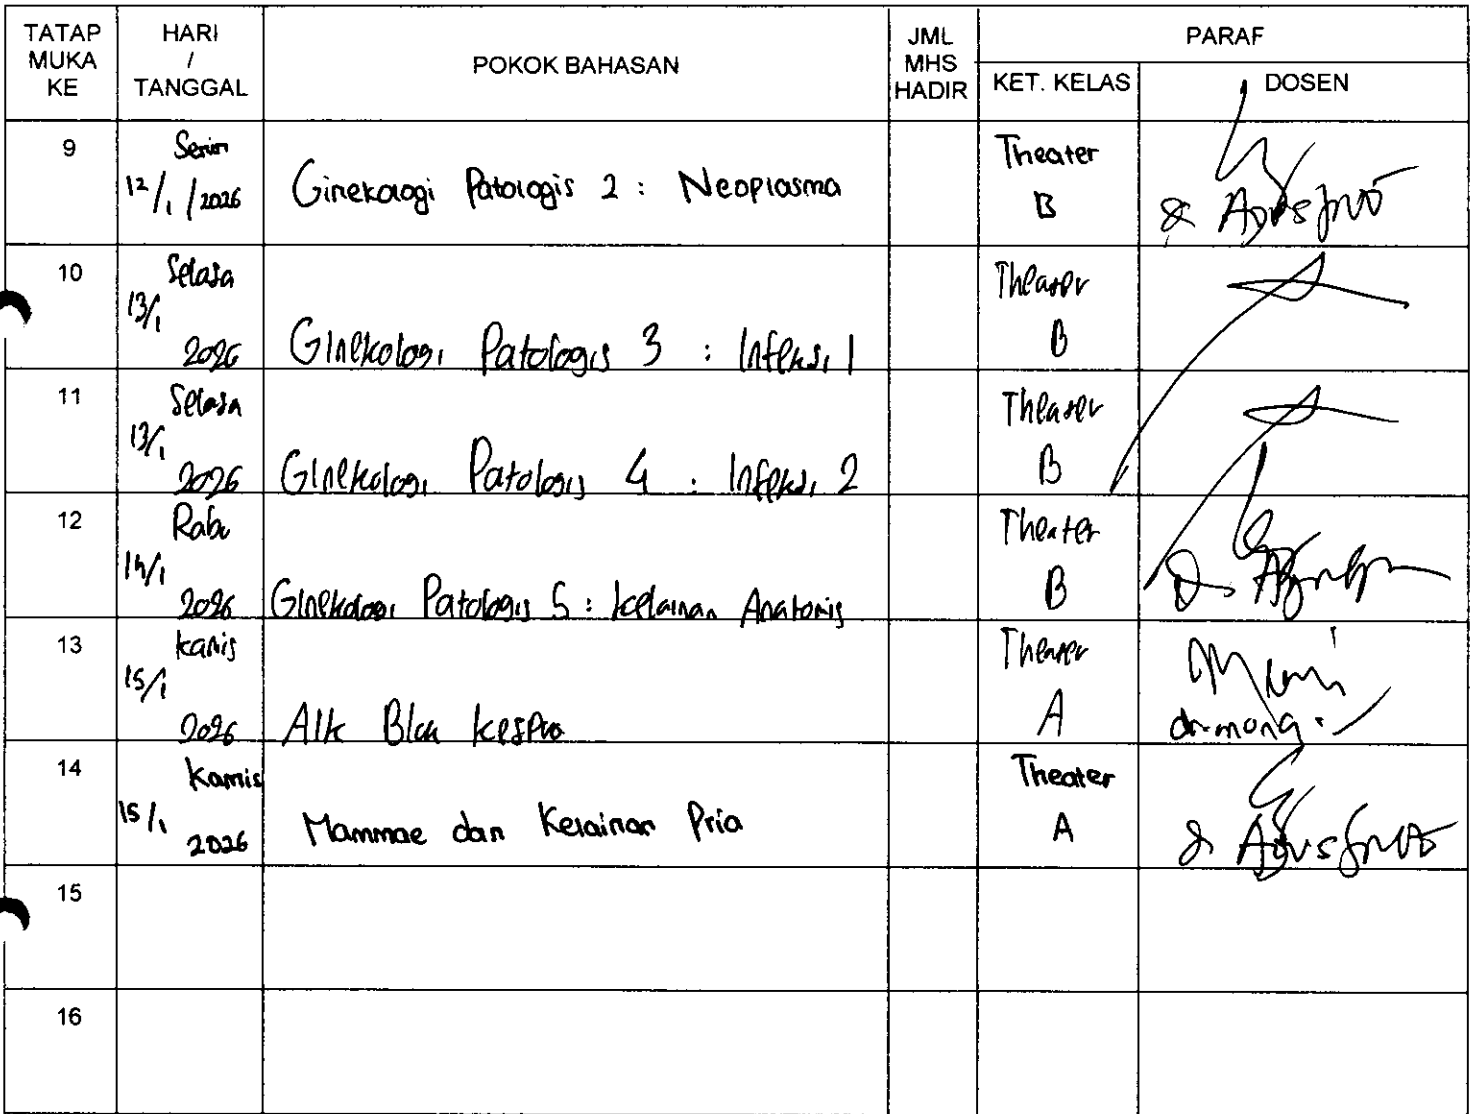 TATAP MUKA KE
HARI / TANGGAL
POKOK BAHASAN
JML MHS HADIR
PARAF
KET. KELAS
DOSEN
9
Senin
12/1/2026
Ginekologi Patologis 2 : Neoplasma
Theater
B
10
Selasa
13/1
2026
Ginekologi Patologis 3 : Infeksi 1
Theater
B
11
Selasa
13/1
2026
Ginekologi Patologis 4 : Infeksi 2
Theater
B
12
Rabu
14/1
2026
Ginekologi Patologis 5 : Kelainan Anatomis
Theater
B
13
Kamis
15/1
2026
Blok Kespro
Theater
A
14
Kamis
15/1
2026
Mammae dan Kelainan Pria
Theater
A
15
16